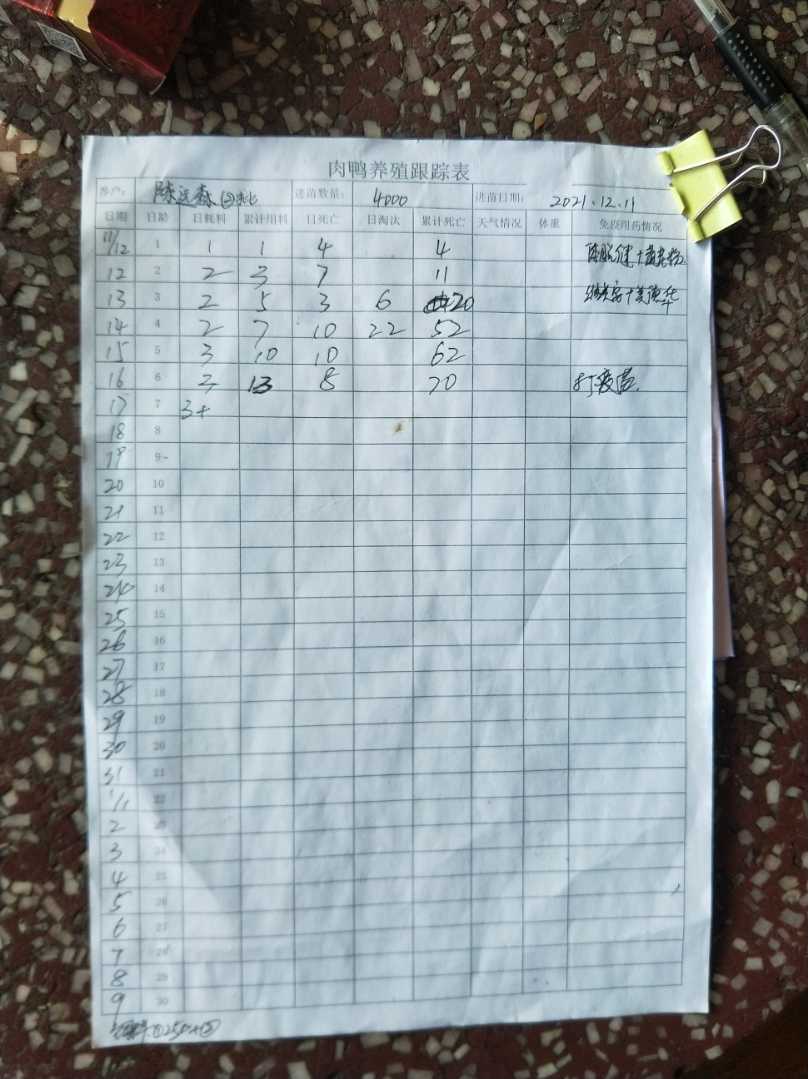 肉鸭养殖跟踪表
客户: 陈远森 进苗数量: 4000 进苗日期: 2021.12.11
日期 日龄 日耗料 累计用料 日死亡 日淘汰 累计死亡 天气情况 体重 免疫用药情况
11/12 1 1 1 4 4
12 2 2 3 7 11
13 3 2 5 3 6 20
14 4 2 7 10 22 52
15 5 3 10 10 62
16 6 3 13 8 70 打疫苗
17 7 3+
18 8
19 9
20 10
21 11
22 12
23 13
24 14
25 15
26 16
27 17
28 18
29 19
30 20
31 21
1/1 22
2 23
3 24
4 25
5 26
6 27
7 28
8 29
9 30